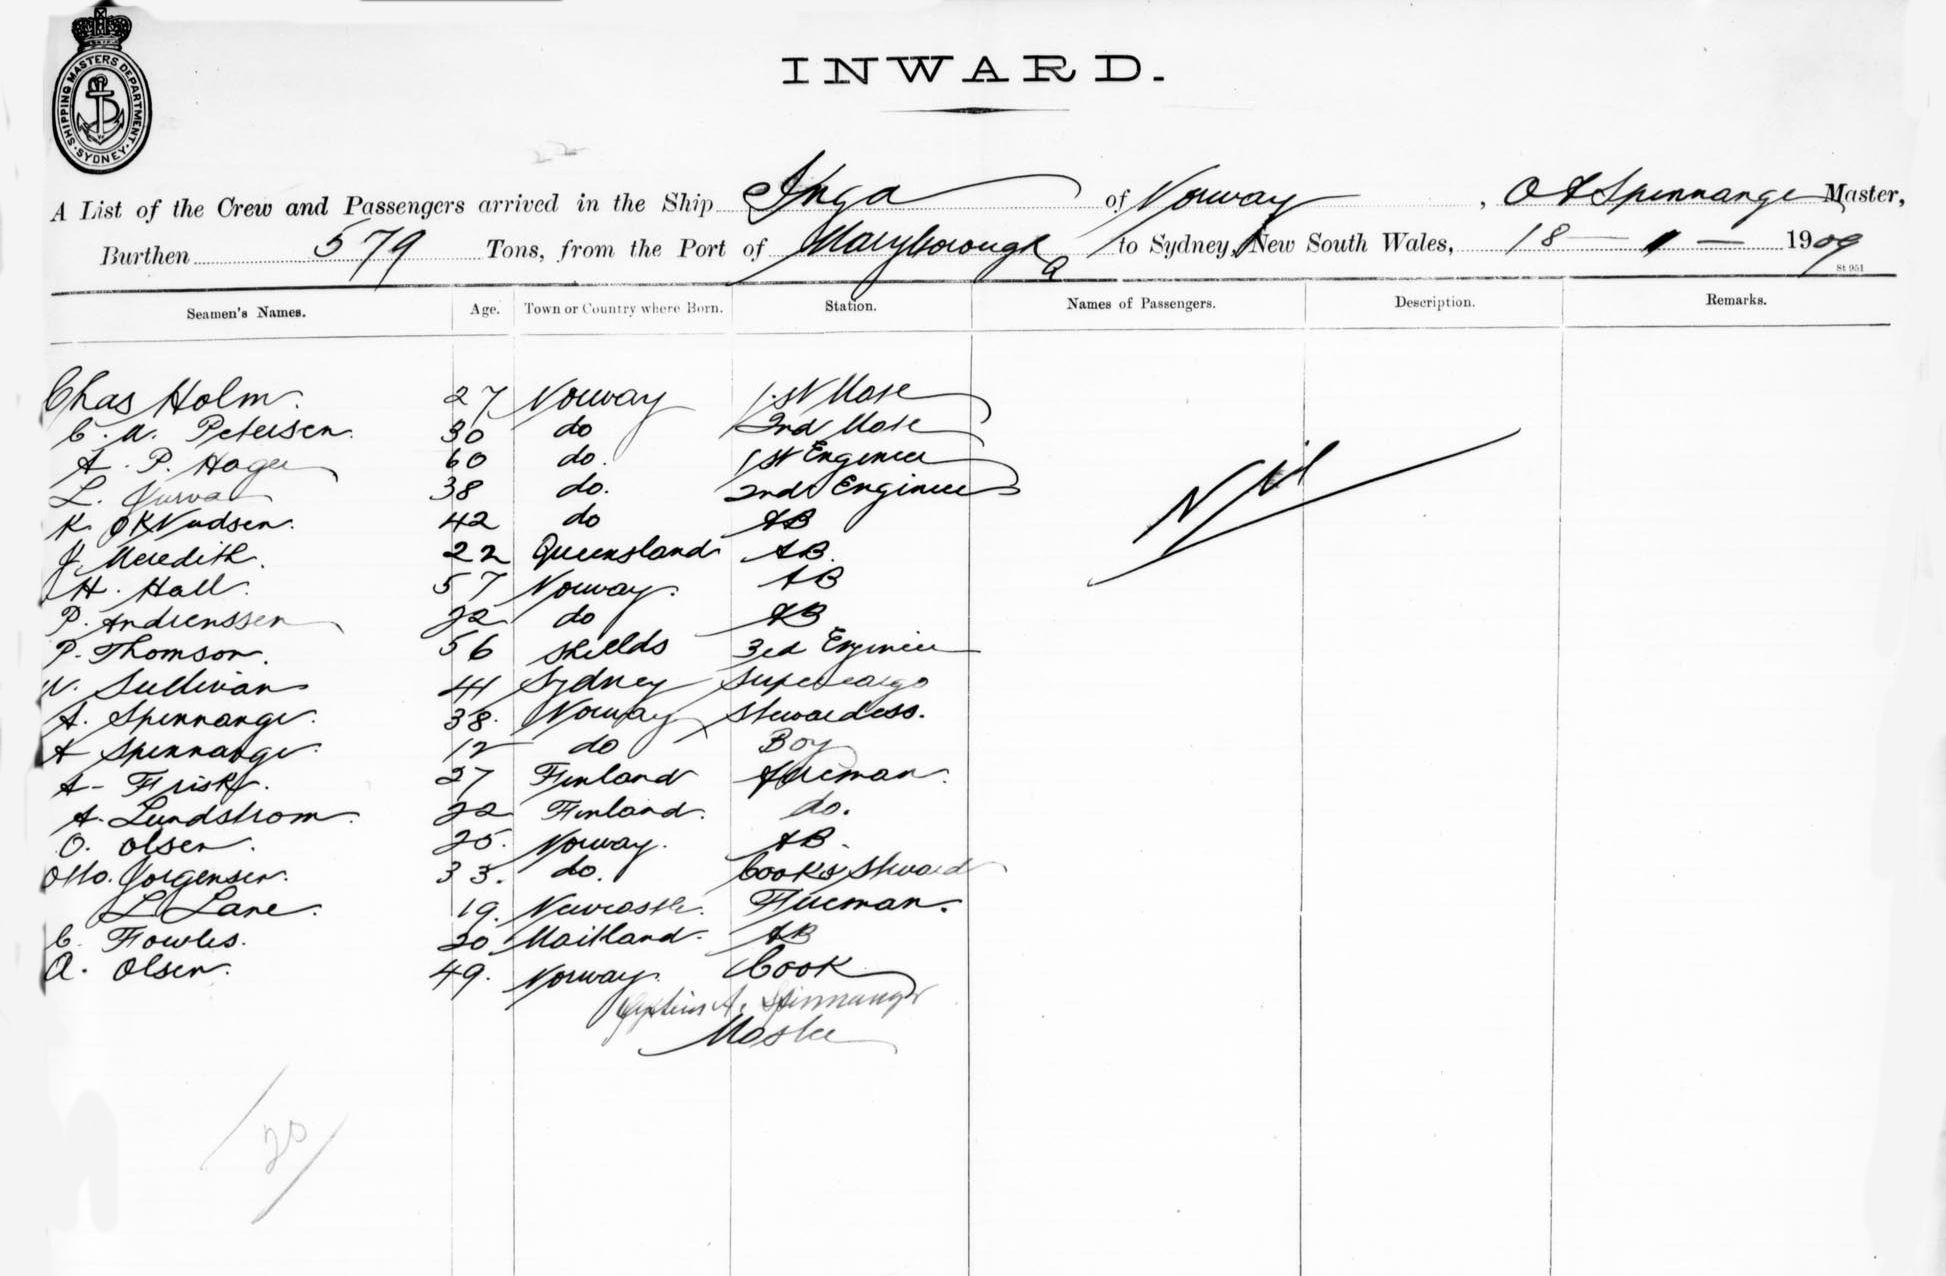 SHIPPING MASTERS DEPARTMENT · SYDNEY ·
INWARD.
22
A List of the Crew and Passengers arrived in the Ship Inga of Norway, O A Spinnangr Master,
Burthen 579 Tons, from the Port of Maryborough Q to Sydney, New South Wales, 18 – 1 – 1909
St 951
Seamen's Names. Age. Town or Country where Born. Station. Names of Passengers. Description. Remarks.
Chas Holm. 27 Norway 1st Mate
C. A. Petersen. 30 do 2nd Mate
A. P. Hager 60 do. 1st Engineer
L. 38 do. 2nd Engineer
K. O Knudsen. 42 do AB
J. Meredith. 22 Queensland AB.
H. Hall. 57 Norway. AB
P. Andrenssen 22 do AB
P. Thomson. 56 Shellds 3rd Engineer
W. Sullivan 41 Sydney Supercargo
A. Spinnangr. 38. Norway Stewardess.
A Spinnangr. 12 do Boy
A- Frisk. 27 Finland Fireman.
A. Lundstrom. 22 Finland. do.
O. Olsen. 25. Norway. AB.
Otto. Jorgensen. 33. do. Cook & Steward
L Lane. 19. Newcastle. Fireman.
C. Fowles. 20 Maitland. AB
A. Olsen. 49. Norway. Cook
Nil
A. Spinnangr
Master
20